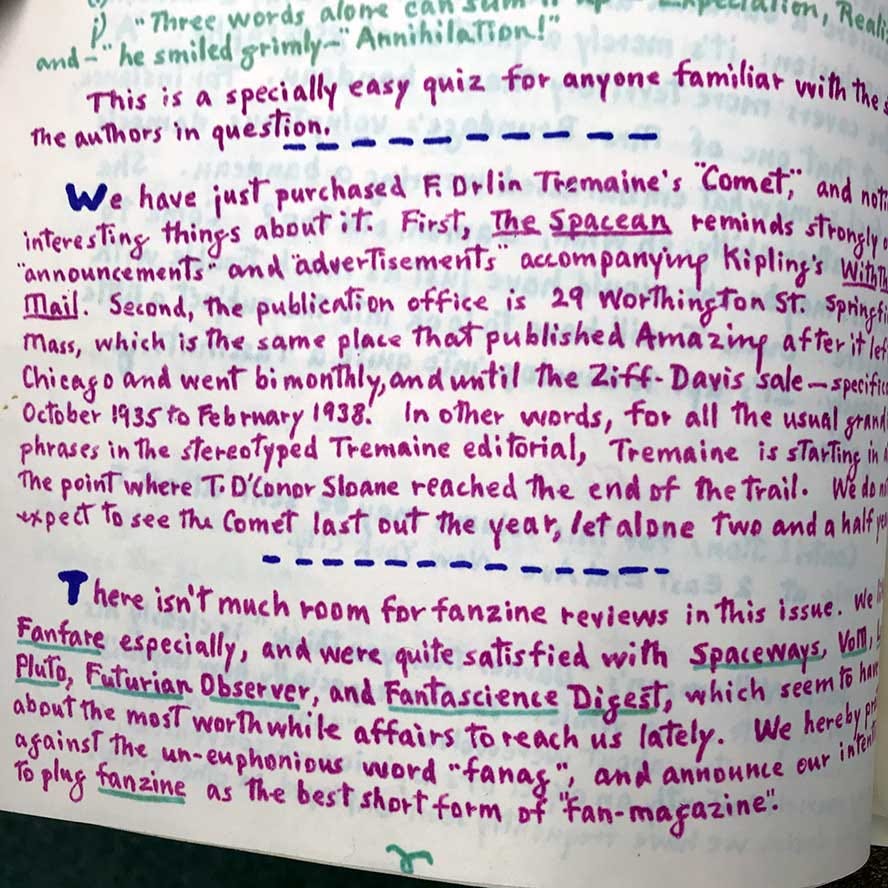 j) "Three words alone can sum it up— Expectation, Reali
and—" he smiled grimly—"Annihilation!"
This is a specially easy quiz for anyone familiar with the s
the authors in question.
We have just purchased F. Orlin Tremaine's "Comet," and noti
interesting things about it. First, The Spacean reminds strongly
"announcements" and "advertisements" accompanying Kipling's With th
Mail. Second, the publication office is 29 Worthington St. Springfi
Mass, which is the same place that published Amazing after it lef
Chicago and went bimonthly, and until the Ziff-Davis sale—specific
October 1935 to February 1938. In other words, for all the usual grand
phrases in the stereotyped Tremaine editorial, Tremaine is starting in a
the point where T. O'Conor Sloane reached the end of the trail. We do n
expect to see the Comet last out the year, let alone two and a half y
There isn't much room for fanzine reviews in this issue. We
Fanfare especially, and were quite satisfied with Spaceways, Vom,
Pluto, Futurian Observer, and Fantascience Digest, which seem to have
about the most worthwhile affairs to reach us lately. We hereby pro
against the un-euphonious word "fanag", and announce our intent
to plug fanzine as the best short form of "fan-magazine".